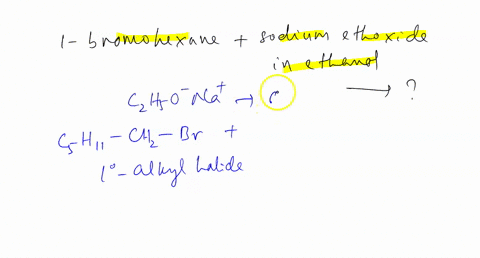 1- bromohexane + sodium ethoxide
in ethanol
⟶ ?
C₂H₅O⁻Na⁺ →
C₅H₁₁−CH₂−Br +
1°- alkyl halide